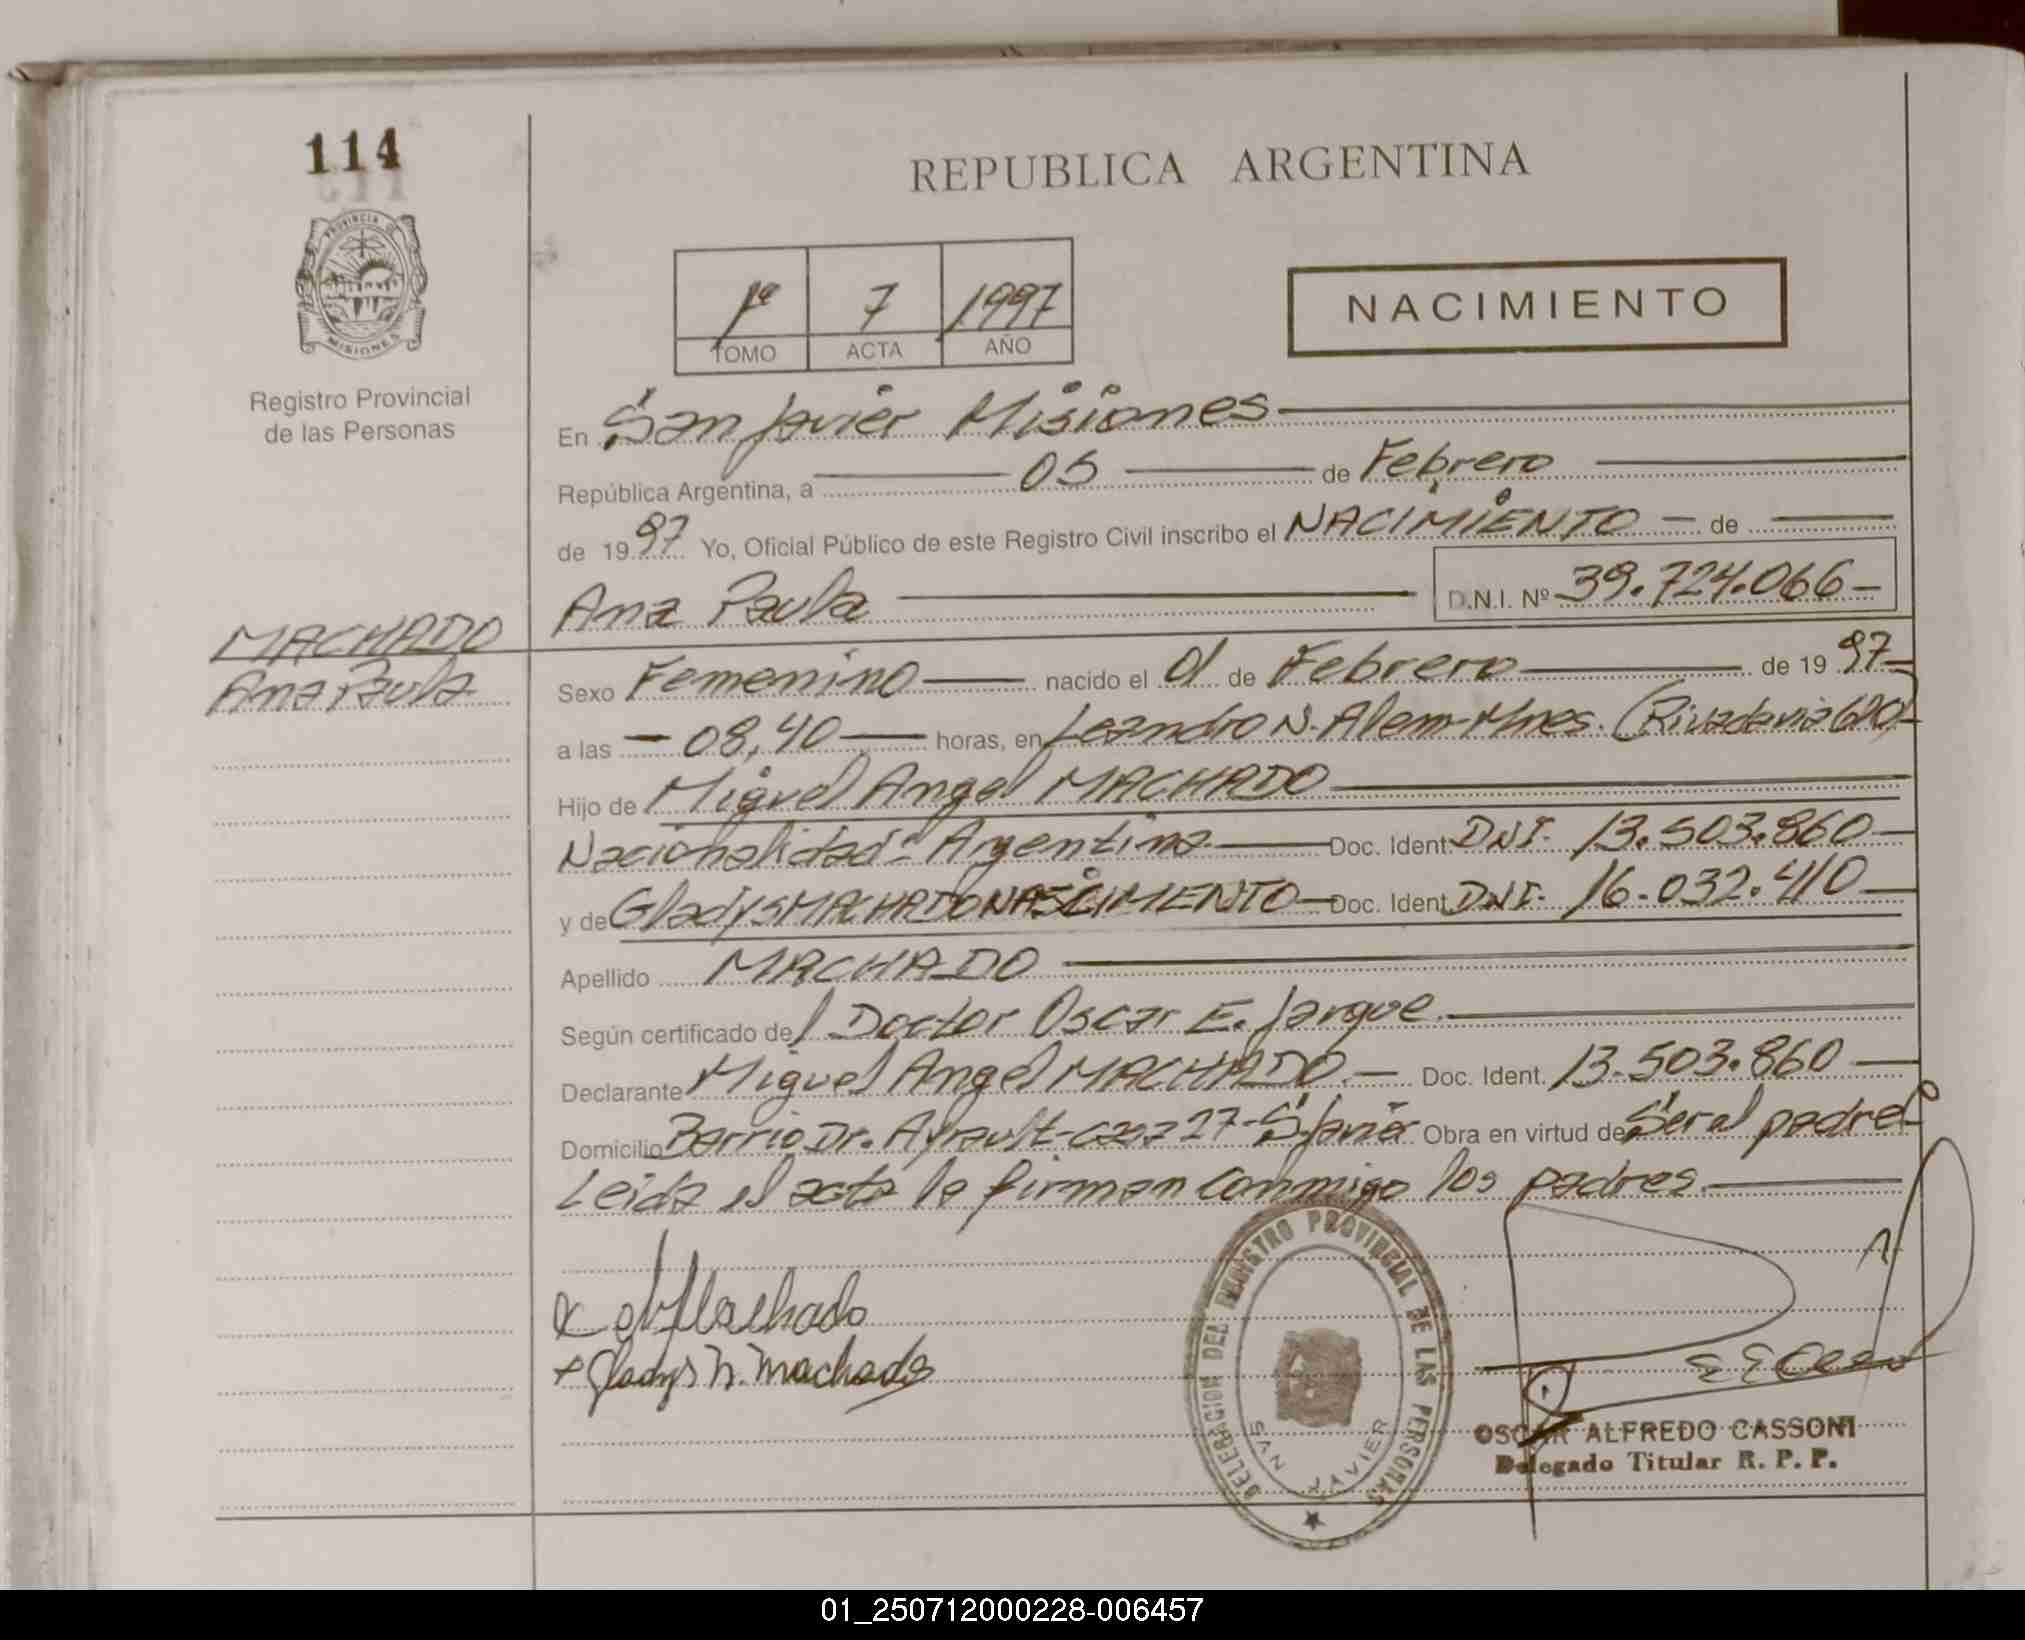 114
REPUBLICA ARGENTINA
PROVINCIA DE
MISIONES
1º 7 1997
TOMO ACTA AÑO
NACIMIENTO
Registro Provincial
de las Personas
En San Javier Misiones
República Argentina, a 05 de Febrero
de 1997 Yo, Oficial Público de este Registro Civil inscribo el NACIMIENTO de
Ana Paula D.N.I. Nº 39.724.066
MACHADO
Ana Paula
Sexo Femenino nacido el 01 de Febrero de 1997
a las 08,40 horas, en Leandro N. Alem-Mnes. (Rivadavia 610)
Hijo de Miguel Angel MACHADO
Nacionalidad: Argentina Doc. Ident DNI. 13.503.860
y de Gladys MACHADO NASCIMIENTO Doc. Ident DNI. 16.032.410
Apellido MACHADO
Según certificado del Doctor Oscar E. Jarque.
Declarante Miguel Angel MACHADO. Doc. Ident. 13.503.860
Domicilio Barrio Dr. Ayrault-casa 27-S. Javier Obra en virtud de Ser el padre
Leida el acta la firman conmigo los padres.
x Machado
+ Gladys N. Machado
DELEGACION DEL REGISTRO PROVINCIAL DE LAS PERSONAS
SAN JAVIER
OSCAR ALFREDO CASSONI
Delegado Titular R. P. P.
01_250712000228-006457